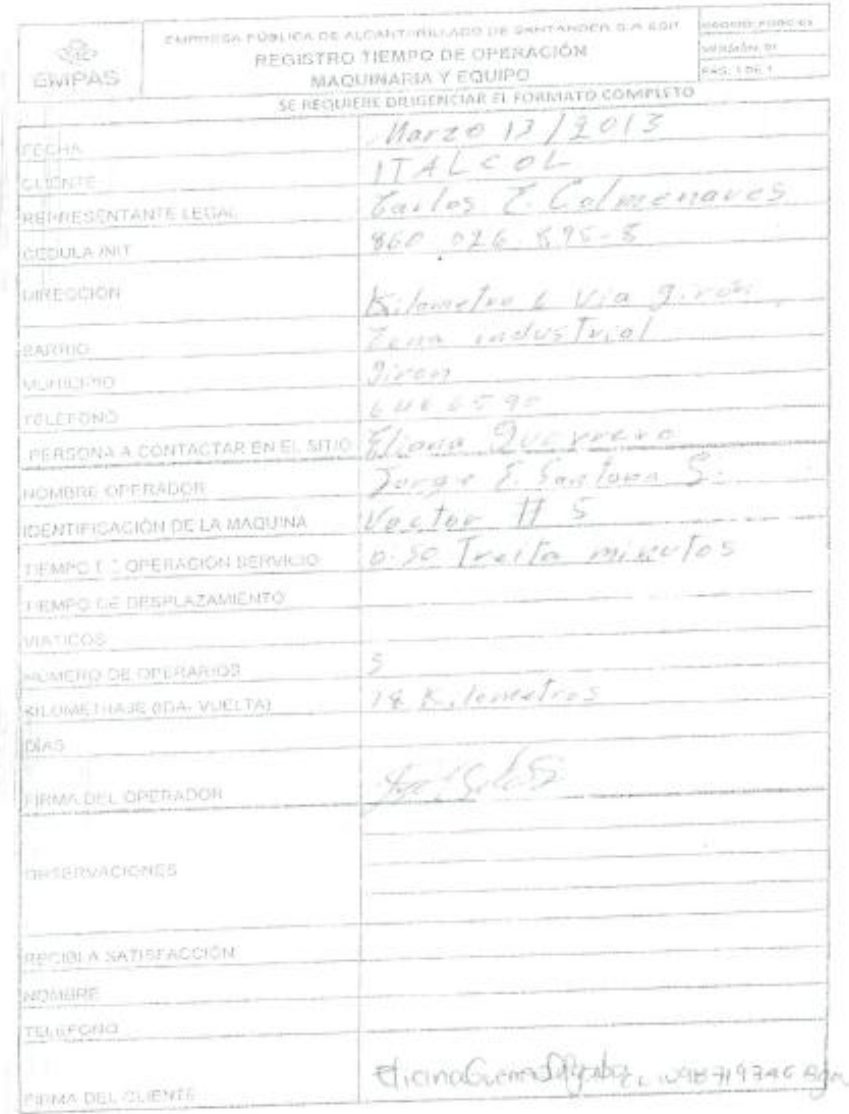 EMPAS
EMPRESA PÚBLICA DE ALCANTARILLADO DE SANTANDER S.A ESP.
REGISTRO TIEMPO DE OPERACIÓN
MAQUINARIA Y EQUIPO
VERSIÓN: 01
PÁG: 1 DE 1
SE REQUIERE DILIGENCIAR EL FORMATO COMPLETO
FECHA Marzo 13/2013
CLIENTE ITALCOL
REPRESENTANTE LEGAL Carlos E. Colmenares
CEDULA /NIT 860 026 895-8
DIRECCIÓN Kilometro 6 Via giron
BARRIO Zona industrial
MUNICIPIO giron
TELÉFONO 646 6590
PERSONA A CONTACTAR EN EL SITIO Eliana Guerrero
NOMBRE OPERADOR Jorge E. Santana S.
IDENTIFICACIÓN DE LA MAQUINA Vactor # 5
TIEMPO DE OPERACIÓN SERVICIO 0.50 Treita minutos
TIEMPO DE DESPLAZAMIENTO
VIATICOS
NÚMERO DE OPERARIOS 5
KILOMETRAJE (IDA- VUELTA) 18 Kilometros
DÍAS
FIRMA DEL OPERADOR
OBSERVACIONES
RECIBI A SATISFACCIÓN
NOMBRE
TELEFONO
FIRMA DEL CLIENTE